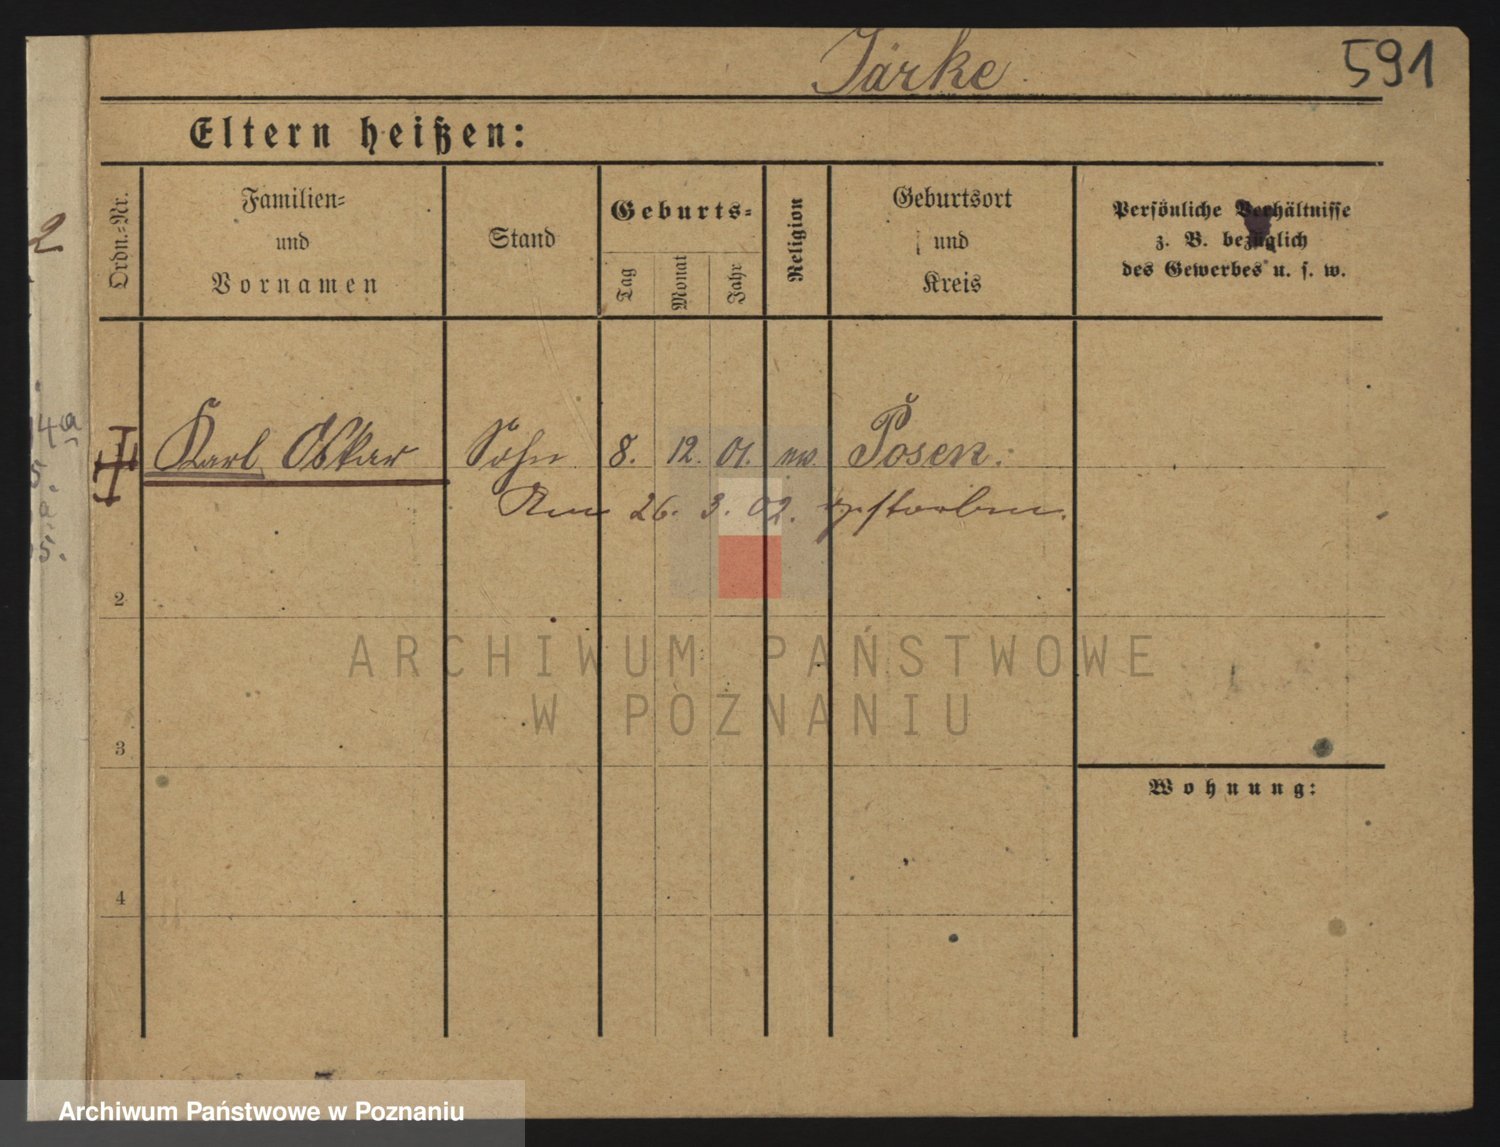 Järke
591
Eltern heißen:
Ordn.-Nr.
Familien-
und
Vornamen
Stand
Geburts-
Tag
Monat
Jahr
Religion
Geburtsort
und
Kreis
Persönliche Verhältnisse
z. B. bezüglich
des Gewerbes u. s. w.
2
4a
5.
5.
Karl Oskar Sohn 8. 12. 01. ev. Posen.
Am 26. 3. 02. gestorben.
2
3
4
Wohnung:
ARCHIWUM PAŃSTWOWE
W POZNANIU
Archiwum Państwowe w Poznaniu